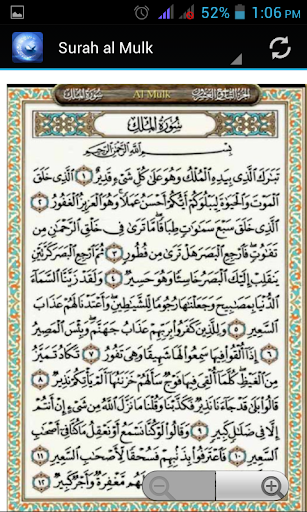 52% 1:06 PM
Surah al Mulk
سُورَةُ المُلْكِ Al-Mulk
سُورَةُ المُلْكِ
بِسْمِ اللَّهِ الرَّحْمَٰنِ الرَّحِيمِ
تَبَارَكَ الَّذِي بِيَدِهِ الْمُلْكُ وَهُوَ عَلَىٰ كُلِّ شَيْءٍ قَدِيرٌ ١ الَّذِي خَلَقَ
الْمَوْتَ وَالْحَيَوٰةَ لِيَبْلُوَكُمْ أَيُّكُمْ أَحْسَنُ عَمَلًا وَهُوَ الْعَزِيزُ الْغَفُورُ ٢
الَّذِي خَلَقَ سَبْعَ سَمَٰوَٰتٍ طِبَاقًا مَا تَرَىٰ فِي خَلْقِ الرَّحْمَٰنِ مِنْ
تَفَٰوُتٍ فَارْجِعِ الْبَصَرَ هَلْ تَرَىٰ مِنْ فُطُورٍ ٣ ثُمَّ ارْجِعِ الْبَصَرَ كَرَّتَيْنِ
يَنْقَلِبْ إِلَيْكَ الْبَصَرُ خَاسِئًا وَهُوَ حَسِيرٌ ٤ وَلَقَدْ زَيَّنَّا السَّمَاءَ
الدُّنْيَا بِمَصَٰبِيحَ وَجَعَلْنَٰهَا رُجُومًا لِلشَّيَٰطِينِ وَأَعْتَدْنَا لَهُمْ عَذَابَ
السَّعِيرِ ٥ وَلِلَّذِينَ كَفَرُوا بِرَبِّهِمْ عَذَابُ جَهَنَّمَ وَبِئْسَ الْمَصِيرُ
٦ إِذَا أُلْقُوا فِيهَا سَمِعُوا لَهَا شَهِيقًا وَهِيَ تَفُورُ ٧ تَكَادُ تَمَيَّزُ
مِنَ الْغَيْظِ كُلَّمَا أُلْقِيَ فِيهَا فَوْجٌ سَأَلَهُمْ خَزَنَتُهَا أَلَمْ يَأْتِكُمْ نَذِيرٌ ٨
قَالُوا بَلَىٰ قَدْ جَاءَنَا نَذِيرٌ فَكَذَّبْنَا وَقُلْنَا مَا نَزَّلَ اللَّهُ مِنْ شَيْءٍ إِنْ أَنْتُمْ
إِلَّا فِي ضَلَٰلٍ كَبِيرٍ ٩ وَقَالُوا لَوْ كُنَّا نَسْمَعُ أَوْ نَعْقِلُ مَا كُنَّا فِي أَصْحَٰبِ
السَّعِيرِ ١٠ فَاعْتَرَفُوا بِذَنْبِهِمْ فَسُحْقًا لِأَصْحَٰبِ السَّعِيرِ ١١
لَهُمْ مَغْفِرَةٌ وَأَجْرٌ كَبِيرٌ ١٢